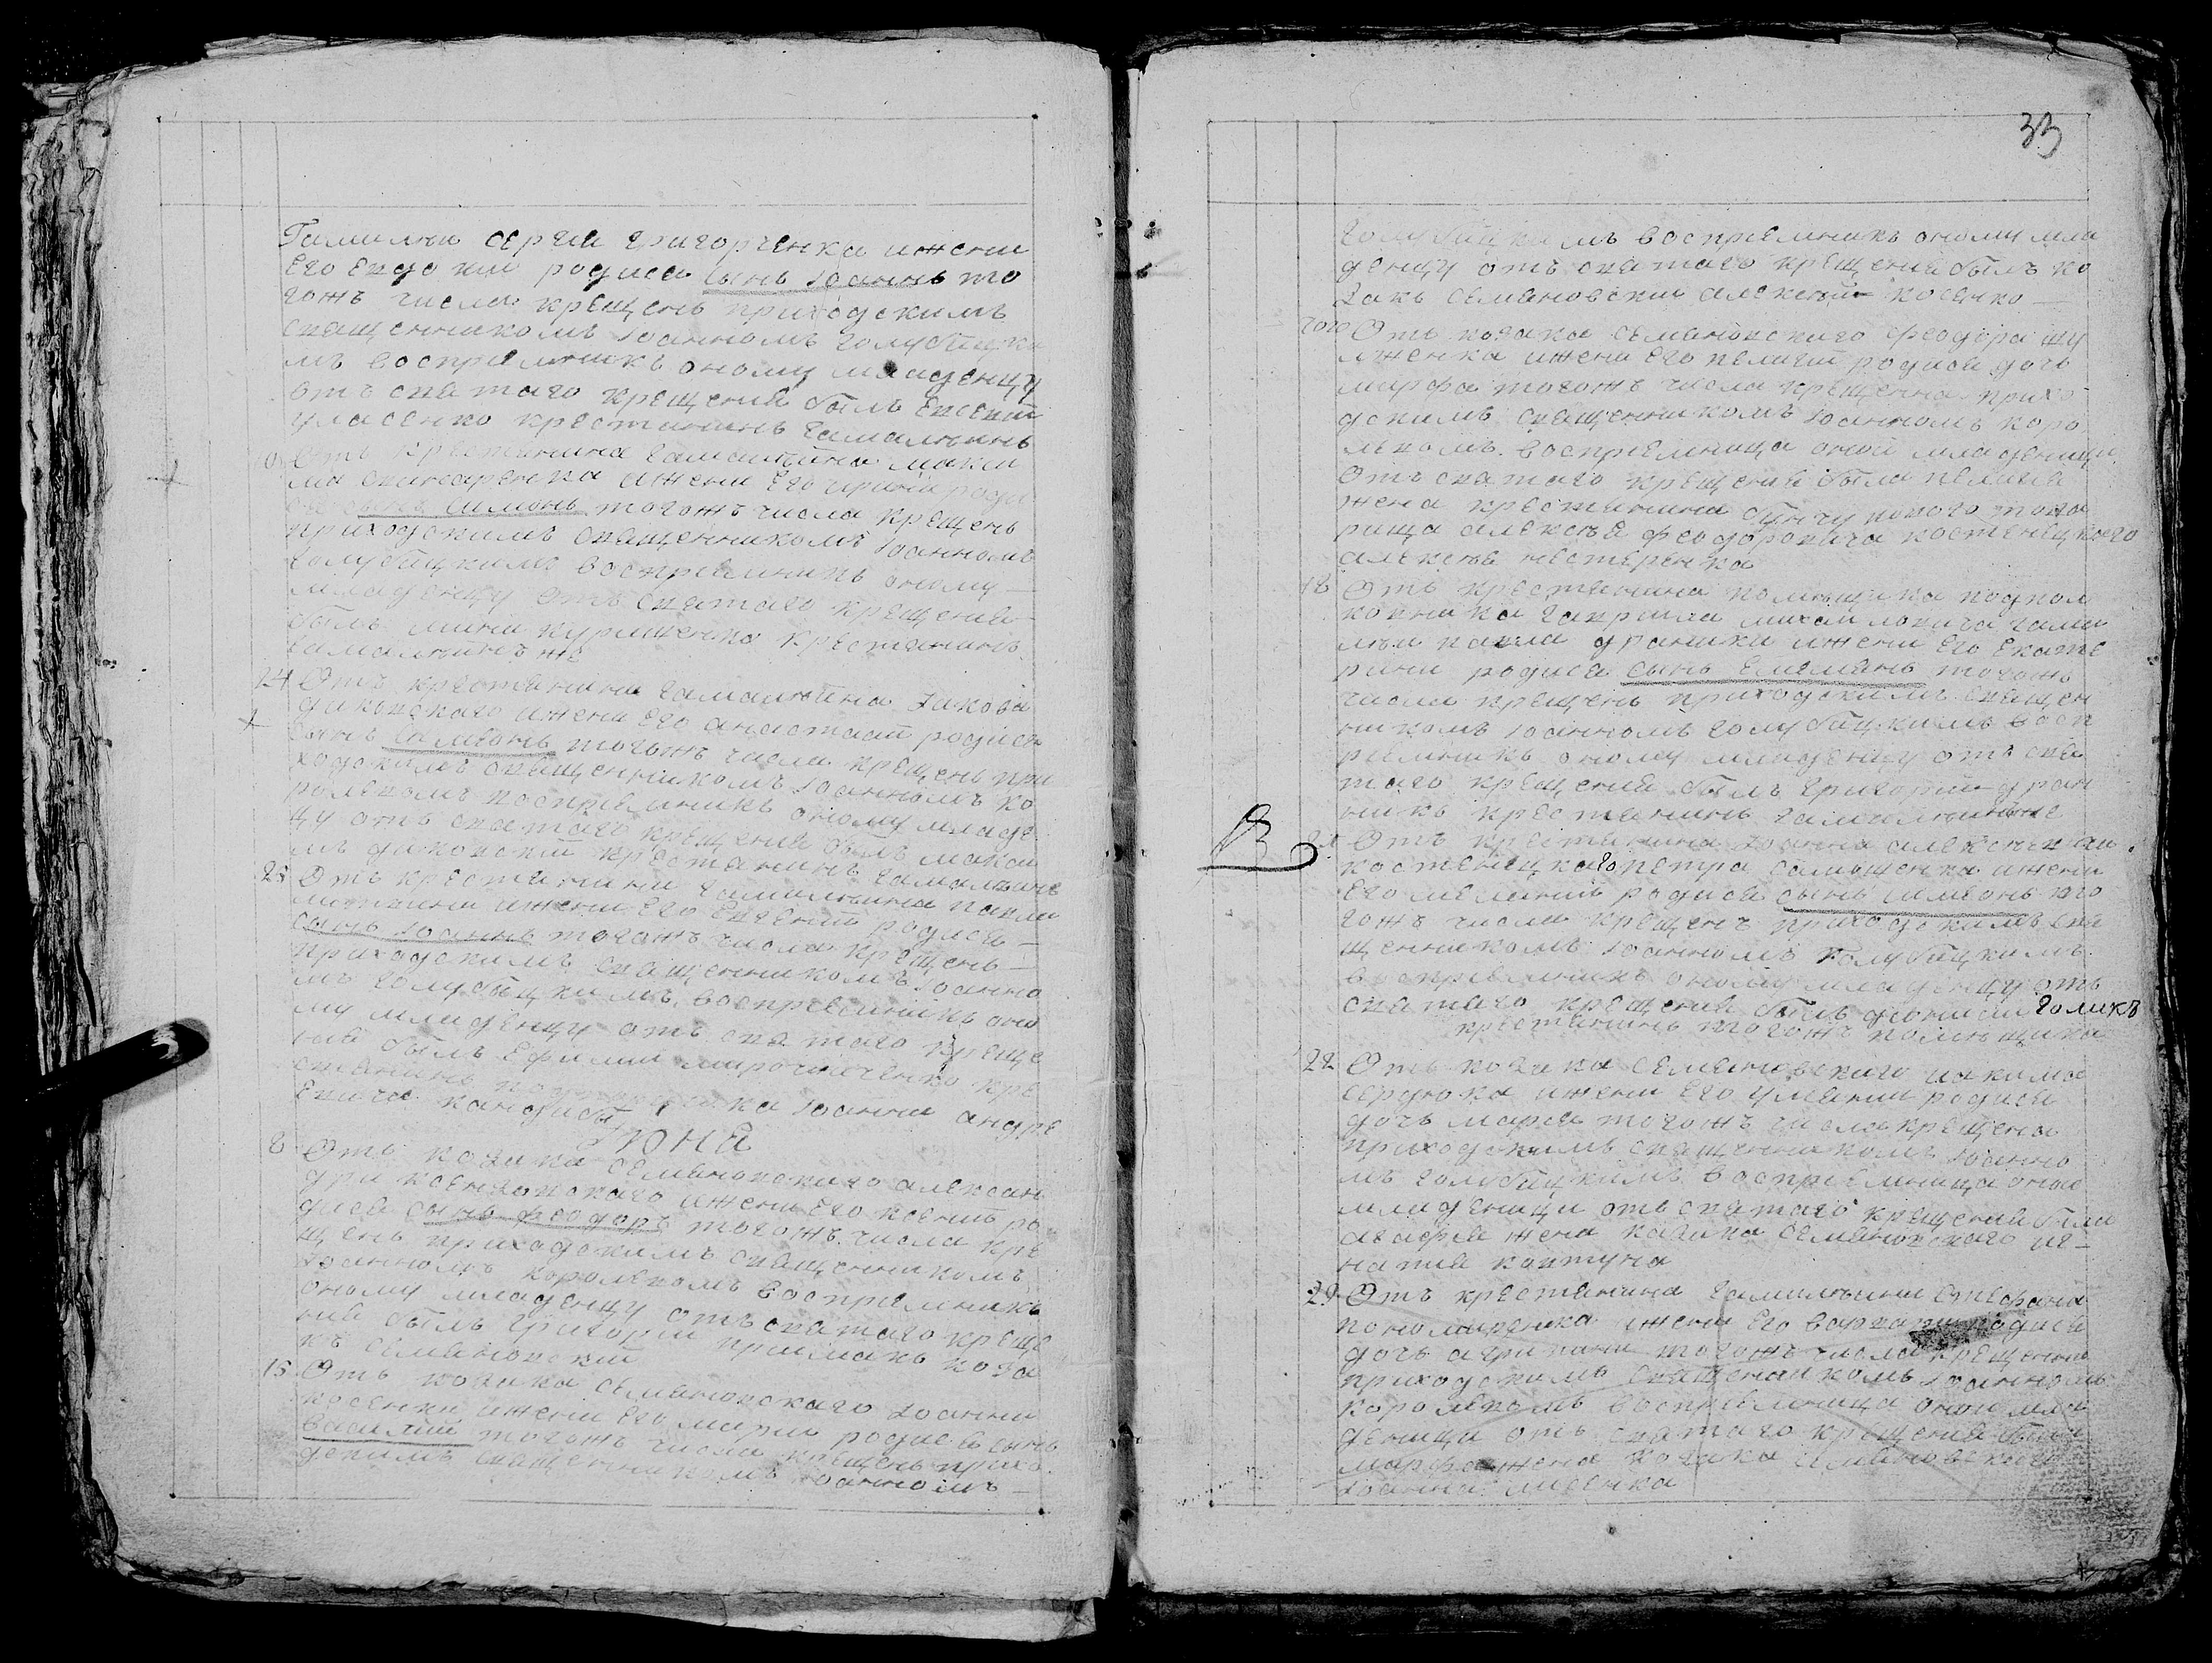 Гамалѣи сергея григорченка ижени
его евдокии родися сынъ Iоаннъ то
гожъ числа крещенъ приходскимъ
священникомъ Iоанномъ голубицки
мъ восприемникъ оному младенцу
отъ святаго крещения былъ евсевий
уласенко крестянинъ гамалѣинъ
Отъ крестянина гамалѣина макси
ма ижени его ирини роди
сынъ симеонъ тогожъ числа крещенъ
приходскимъ священникомъ Iоанномъ
голубицкимъ восприемникъ оному
младенцу отъ святаго крещения
былъ мина курищенко крестянинъ
гамалѣинъ же
24 Отъ крестянина гамалѣина якова
диковского ижени его анастасии родися
сынъ симеонъ тогожъ числа крещенъ при
ходскимъ священникомъ Iоанномъ ко
ролевомъ восприемникъ оному младе
цу отъ святаго крещения былъ макси
мъ диковский крестянинъ гамалѣинъ
28 Отъ крестянина гамалѣина павла
ижени его евгении родися
сынъ Iоаннъ тогожъ числа крещенъ
приходскимъ священникомъ Iоанно
мъ голубицкимъ восприемникъ оно
му младенцу отъ святаго креще
ния былъ ефимий мирошниченко кре
стянинъ Iоанна андре
евича кандиби
Июня
8 Отъ козака семяновского алексан
дра ижени его ксении ро
дися сынъ феодоръ тогожъ числа кре
щенъ приходскимъ священникомъ
Iоанномъ королевомъ восприемникъ
оному младенцу отъ святаго креще
ния былъ григорий приймакъ коза
къ семяновский
15 Отъ козака семяновского Iоанна
косенка ижени его марии родися сынъ
василий тогожъ числа крещенъ прихо
дскимъ священникомъ Iоанномъ
33
голубицкимъ восприемникъ оному мла
денцу отъ святаго крещения былъ ко
закъ семяновский алексий косенко
Отъ козака семяновского феодора шу
лженка ижени его пелагии родися дочь
марфа тогожъ числа крещенна прихо
дскимъ священникомъ Iоанномъ коро
левомъ восприемница оной младеници
отъ святаго крещения была пелагия
жена крестянина бунчукового това
рища алексѣя феодоровича костенецкого
алексѣя нестеренка
18 Отъ крестянина помѣщика подпол
ковника гавриила михайловича гама
лѣи павла драника ижени его екате
рини родися сынъ емелянъ тогожъ
числа крещенъ приходскимъ священ
никомъ Iоанномъ голубицкимъ восп
риемникъ оному младенцу отъ свя
таго крещения былъ григорий дран
никъ крестянинъ гамалѣинъ
21 Отъ крестянина Iоанна алексѣевича
костенецкаго петра ижени
его мелании родися сынъ симеонъ то
гожъ числа крещенъ приходскимъ свя
щенникомъ Iоанномъ Голубицкимъ
восприемникъ оному младенцу отъ
святаго крещения былъ дениси голикъ
крестянинъ тогожъ помѣщика
22 Отъ козака семяновского иакима
сердюка ижени его улиянии родися
дочь мария тогожъ числа крещена
приходскимъ священникомъ Iоанно
мъ голубицкимъ восприемница оной
младеници отъ святаго крещения была
агафия жена козака семяновского иг
натия ковтуна
29 Отъ крестянина гамалѣина стефана
пономаренка ижени его варвари родися
дочь агрипина тогожъ числа крещенна
приходскимъ священникомъ Iоанномъ
королевомъ восприемница оной мла
деници отъ святаго крещения была
марфа жена козака семяновского
Iоанна лисенка